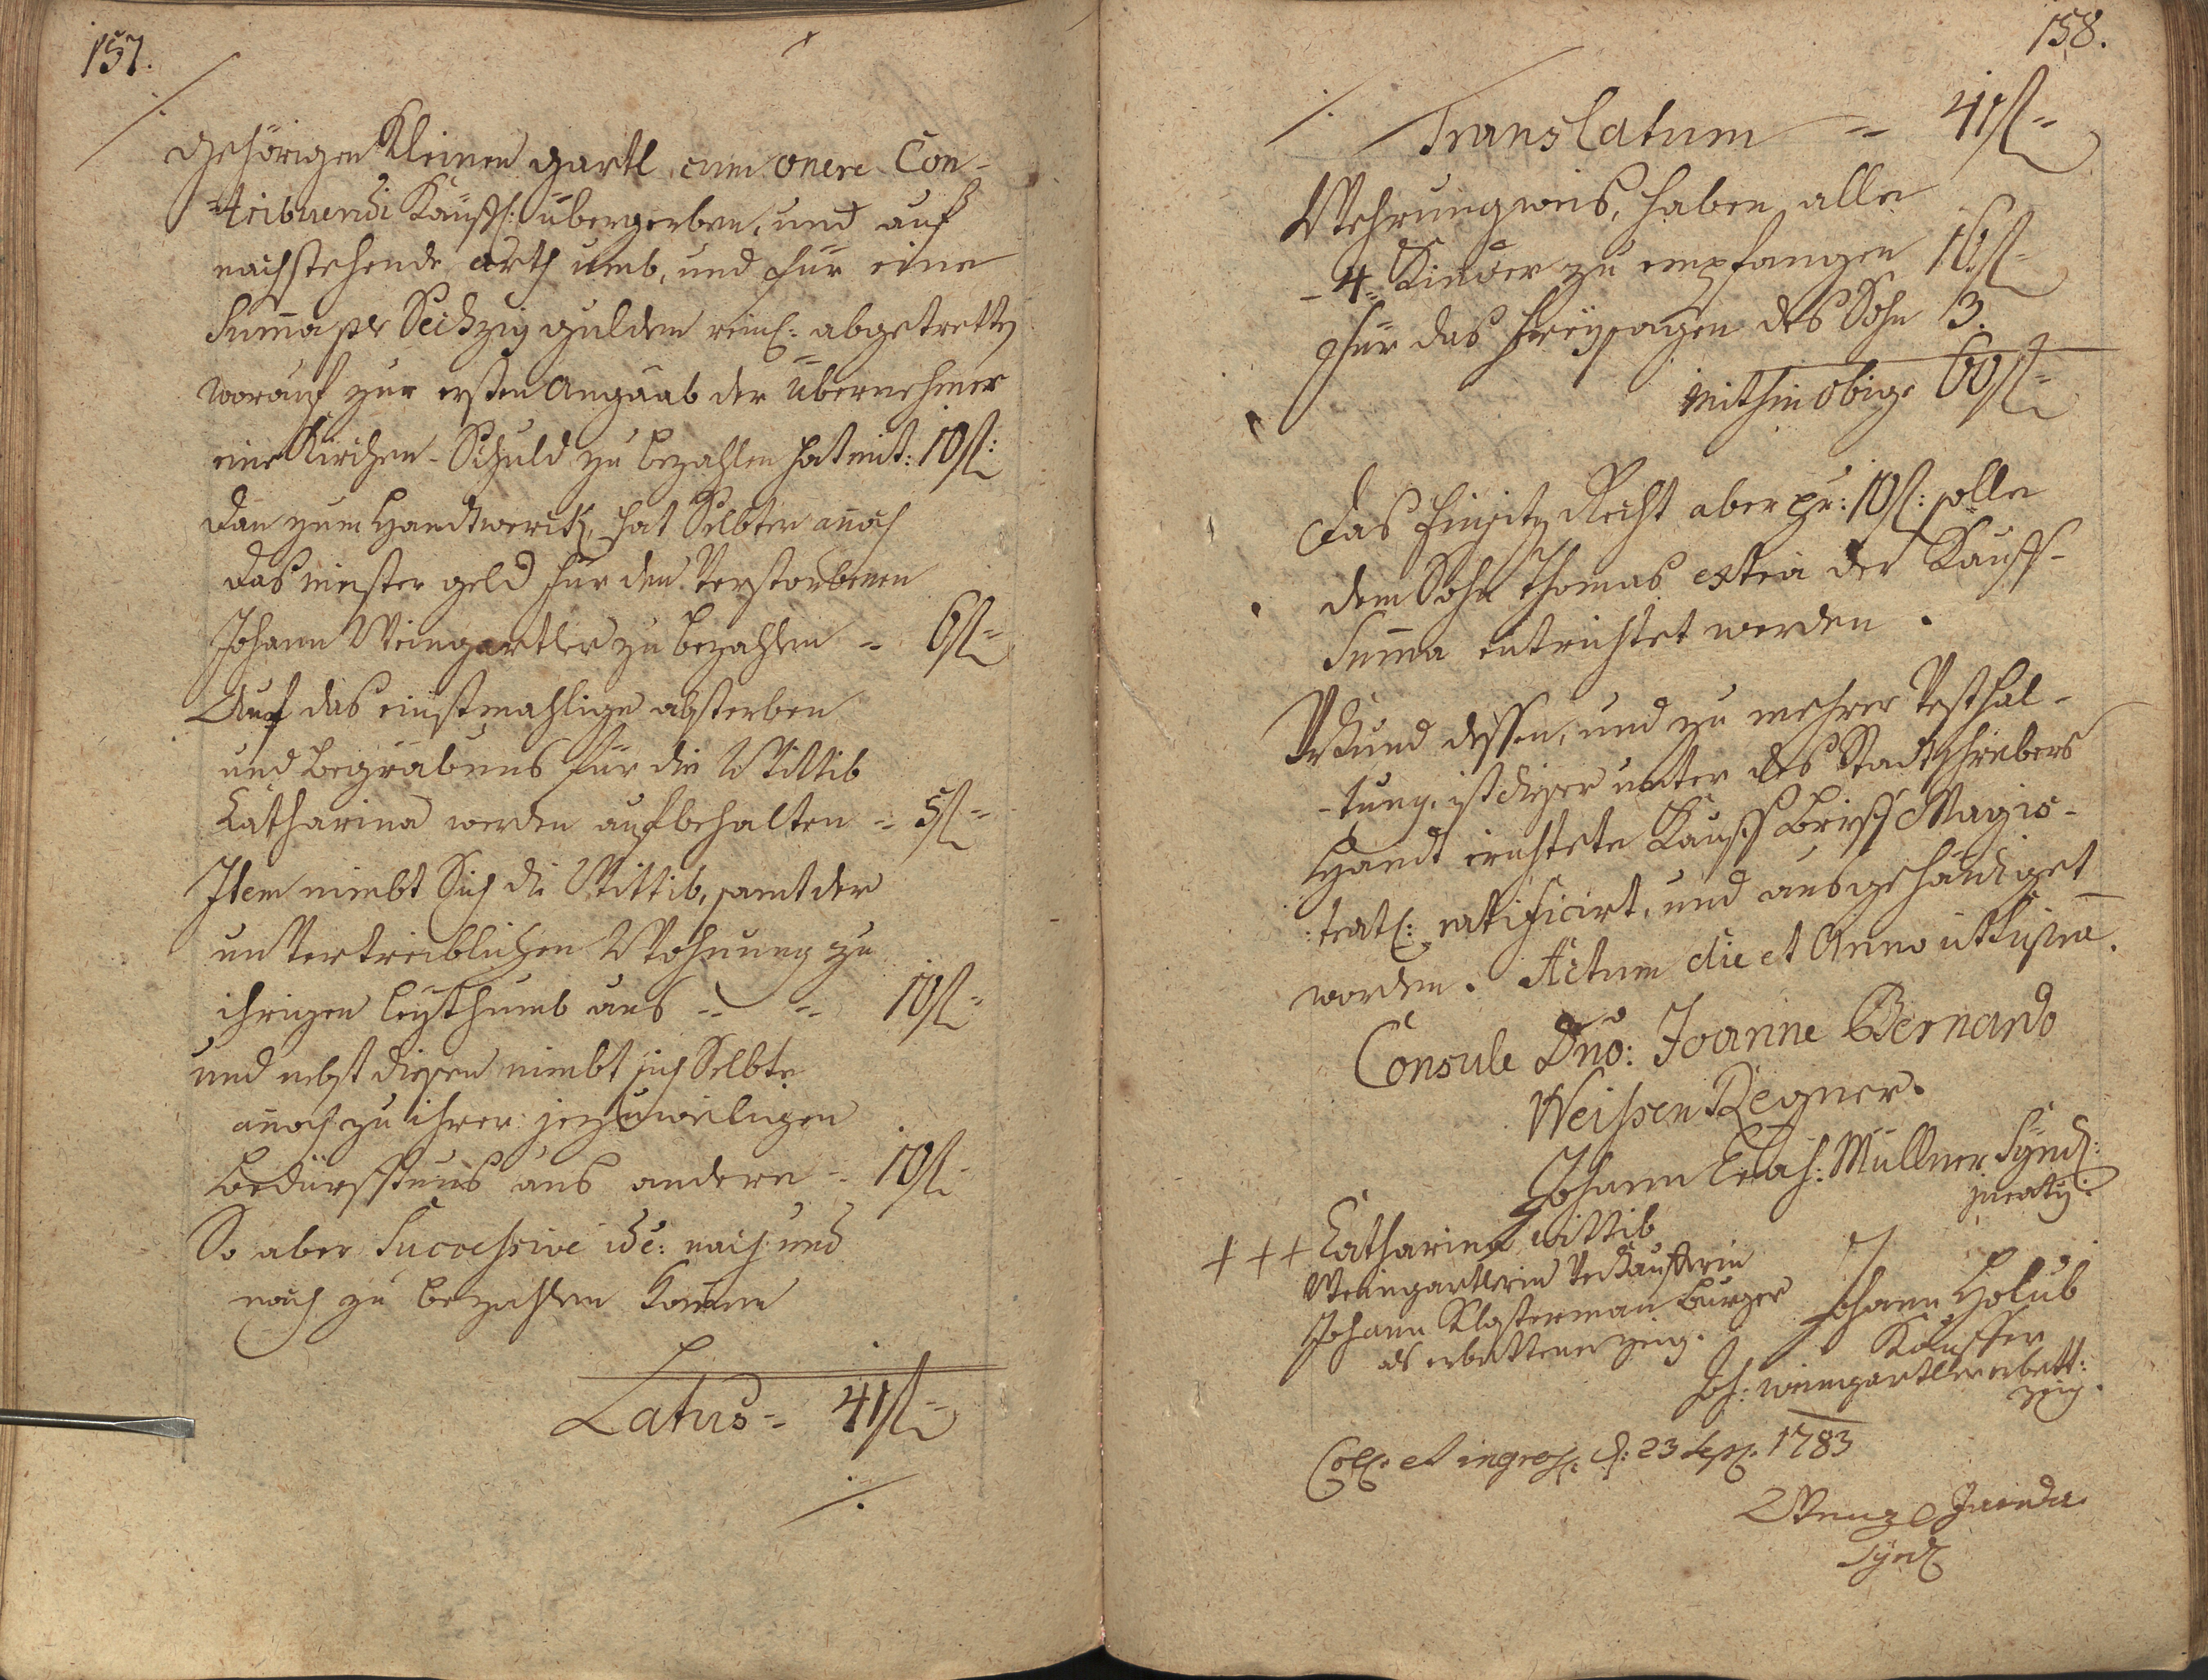 157.
gehörigen Kleinen gartl cum onere Con-
-tribuendi Käuffl: übergeben, und auf
nachstehende arth umb, und für eine
Suma pr Sechzig gulden reinl: abgetretten
worauf zur ersten Angaab der Übernehmer
eine Kirchen-Schuld zu bezahlen hat mit: 10 fl:
dan zum Handtwerck, hat Selbter anoch
das meister geld für den Verstorbenen
Johann Weingartler zu bezahlen = 6 fl =
Auf das einstmahlige absterben
und begräbnus für die Wittib
Catharina werden aufbehalten = 5 fl =
Item nimbt Sich die Wittib, samt der
unvertreiblichen Wohnung zu
ihrigen leythumb aus = = 10 fl =
und nebst diesen nimbt sich Selbte
anoch zu ihrer jezuweiligen
bedürfftnus aus andere = 10 fl =
So aber Successive id e: nach und
nach zu bezahlen komen
Latus = 41 fl =
./.
158.
./. Translatum = 41 fl =
Wehrungweis, haben alle
-4 Kinder zu empfangen 16 fl =
für das freysagen des Sohn 3.
mithin obige 60 fl =
das Einsitz Recht aber pr: 10 fl: solle
dem Sohn Thomas extra der Kauff-
Suma entrichtet werden.
Urkund dessen, und zu mehrer Vesthal-
-tung, ist dieser unter des Stadtschreibers
Handt errichtete Kauff Brieff Magis-
:tratl: ratificirt, und ausgehändiget
worden. Actum die et Anno ut supra.
Consule Dno: Joanne Bernardo
Weissen Regner.
Johann Müllner Synd:
juratq:
+ + + Catharina Wittib
Weingartlerin Verkaufferin
Johann Klosterman burger
als erbettener zeig.
Johann Holub
Kauffer
Joh: weingartler erbett:
zeig.
Coll: et ingross: d: 23 Sept: 1783
Wenzl
Synd: